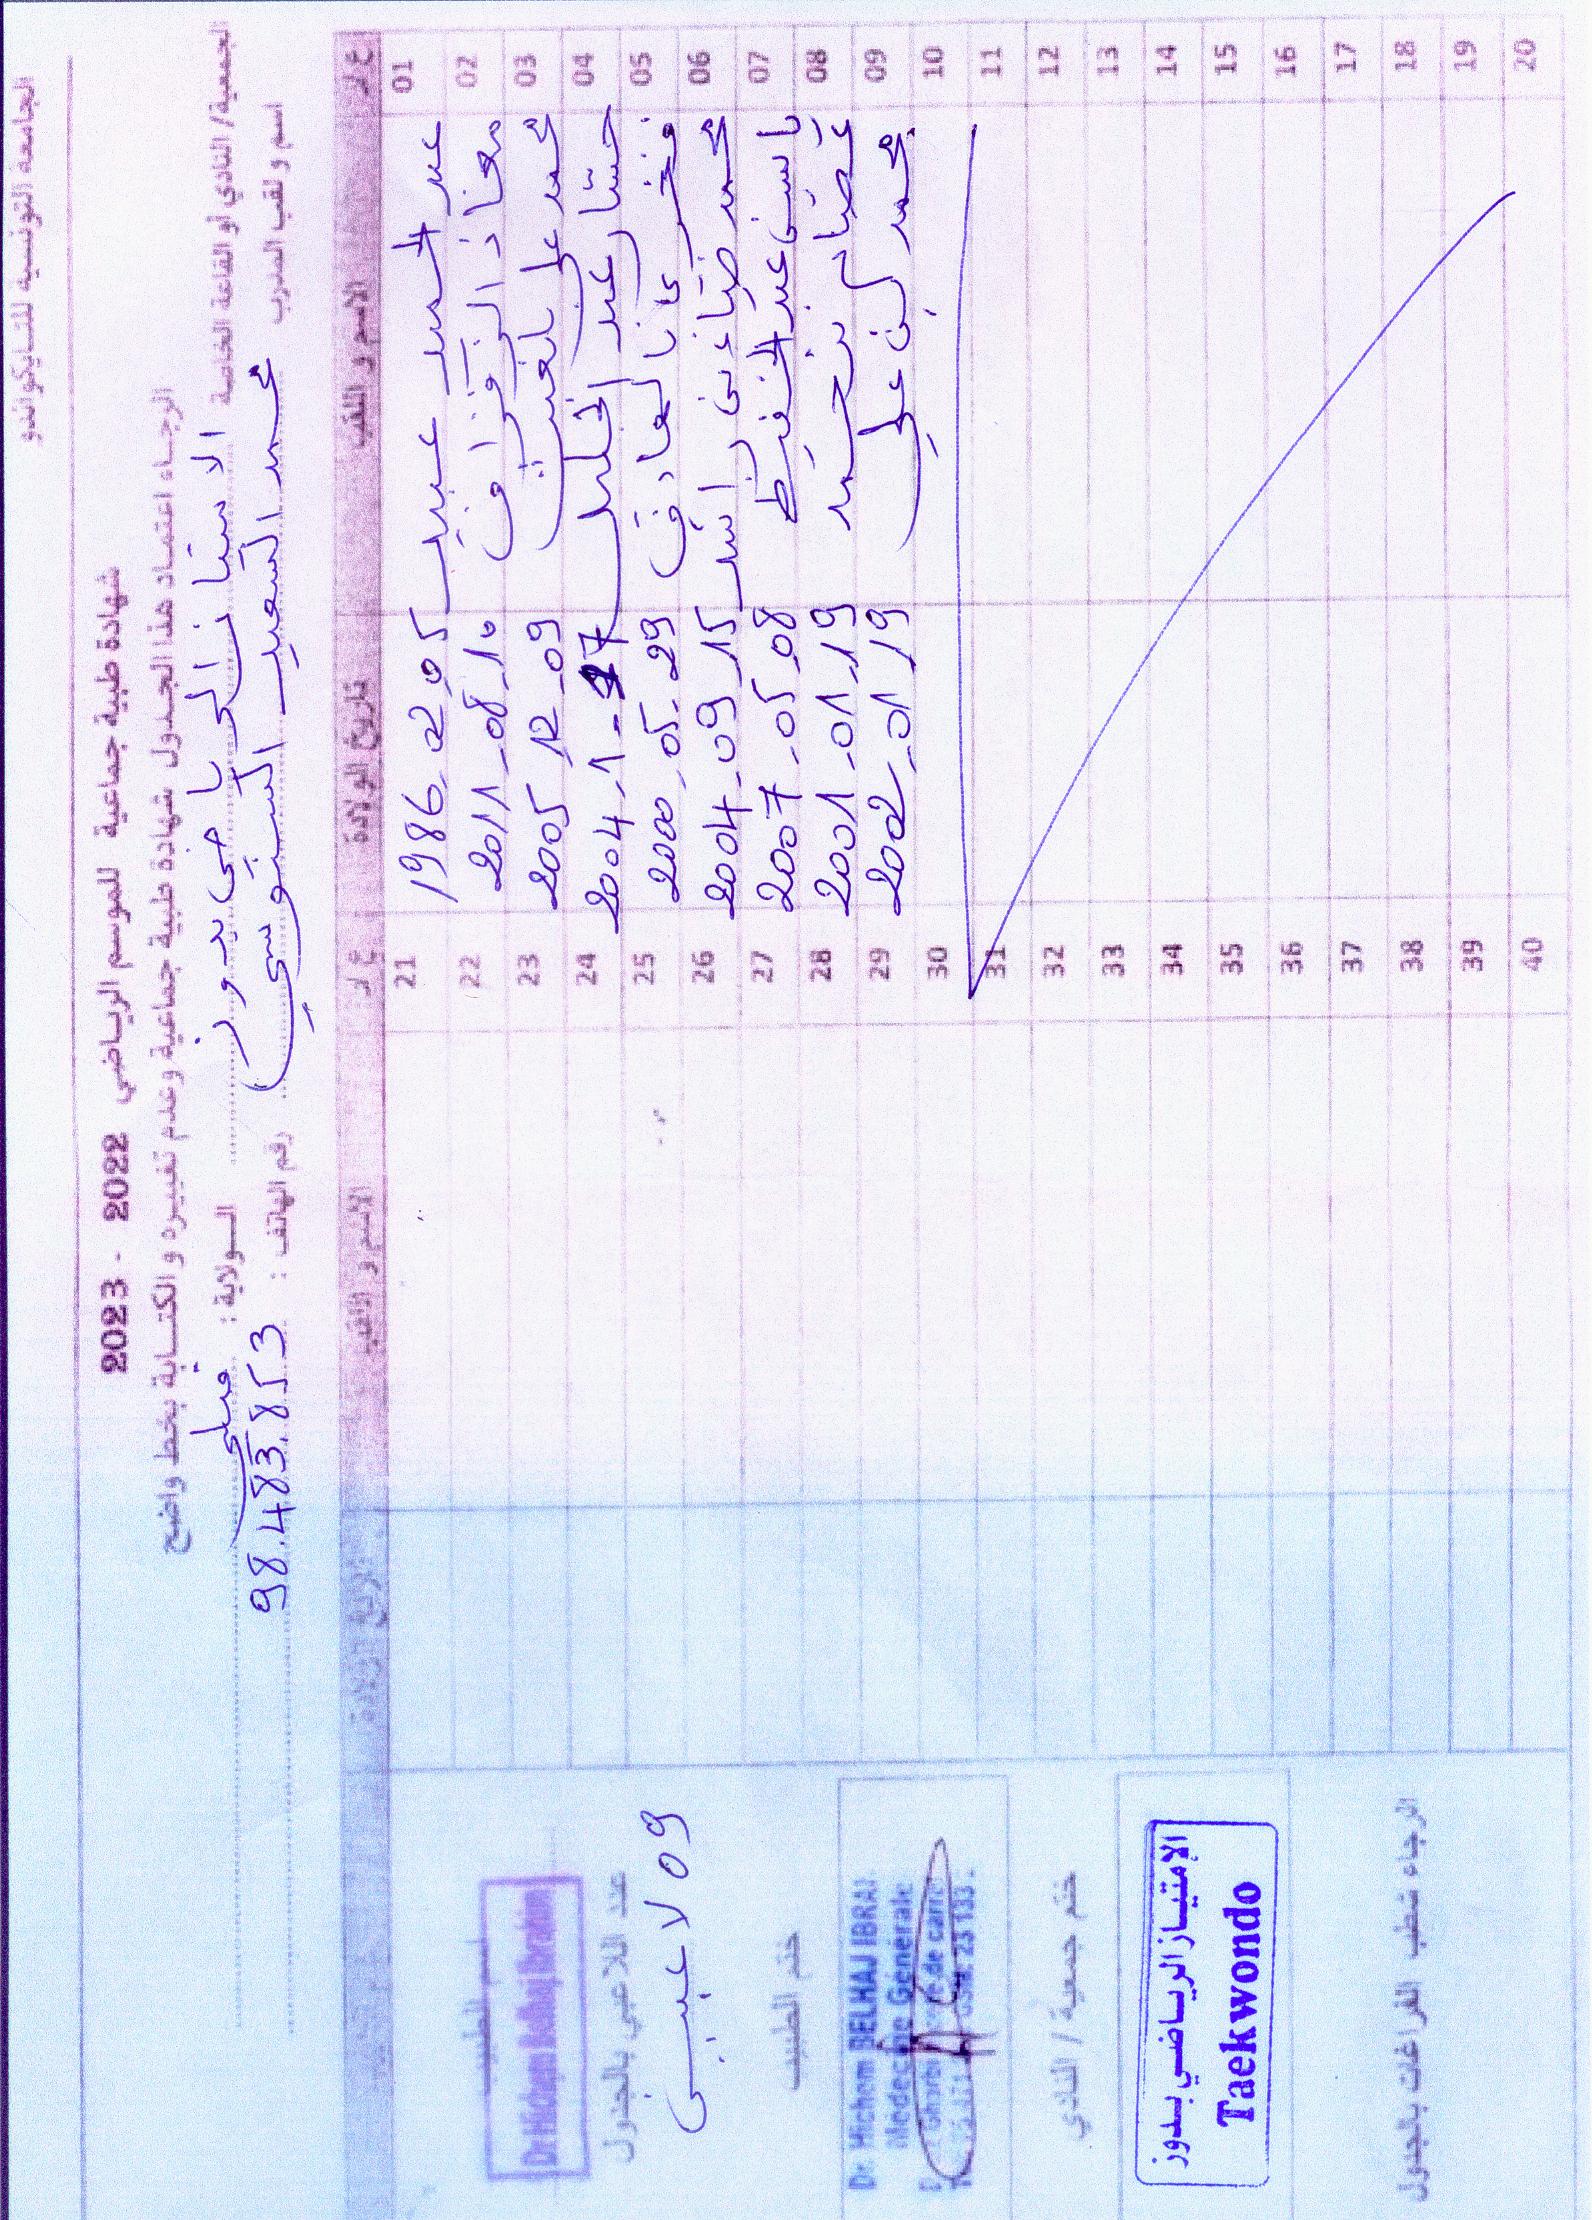 الجامعة التونسية للتايكواندو
شهادة طبية جماعية للموسم الرياضي 2022 - 2023
الرجاء اعتماد هذا الجدول شهادة طبية جماعية وعدم تغييره والكتابة بخط واضح
الجمعية/ النادي أو القاعة الخاصة
الولاية : قبلي
اسم و لقب المدرب محمد السعيد السنوسي
رقم الهاتف : 98.483.853
ع/ر الاسم و اللقب تاريخ الولادة ع/ر الاسم و اللقب تاريخ الولادة
01 عبد الحميد عبيد 1986_02_05 21
02 معاذ 2011_08_10 22
03 محمد علي 2005_12_09 23
04 عبد الجليل 2004_1_17 24
05 2000_05_29 25
06 محمد ضياء بن راشد 2004_09_15 26
07 ياسين عبد الحفيظ 2007_05_08 27
08 بن حميد 2001_01_19 28
09 محمد بن علي 2002_01_19 29
10 30
11 31
12 32
13 33
14 34
15 35
16 36
17 37
18 38
19 39
20 40
اسم الطبيب
Dr Hichem Belhaj Ibrahim
عدد اللاعبي بالجدول
09 لاعبين
ختم الطبيب
Dr. Hichem BELHAJ IBRAHI
Médecine Générale
ختم جمعية / النادي
الإمتياز الرياضي بدوز
Taekwondo
الرجاء شطب الفراغات بالجدول